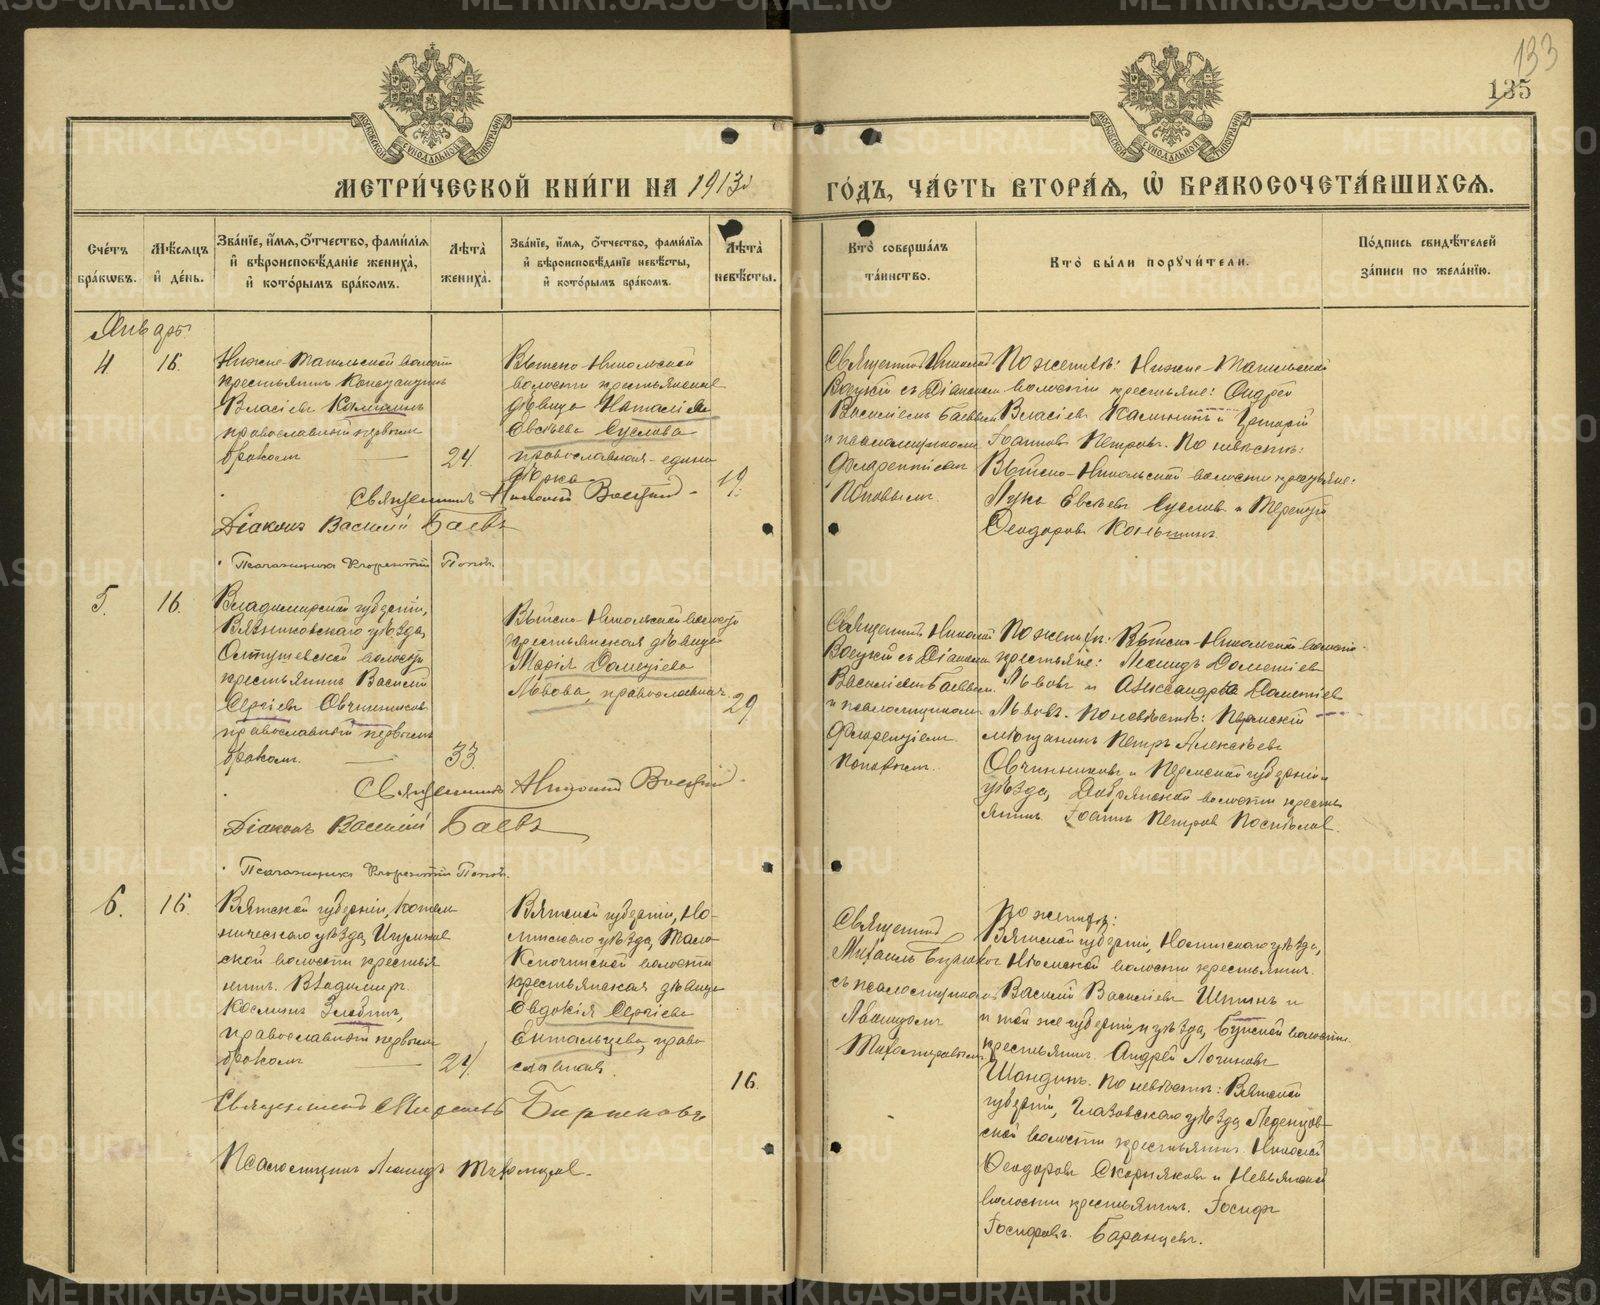 133
135
МЕТРИ́ЧЕСКОЙ КНИ́ГИ НА 1913
ГО́ДЪ, ЧА́СТЬ ВТОРА́Я, Ѡ҆ БРАКОСОЧЕТА́ВШИХСЯ.
Сче́тъ бра́кѡвъ.
Мѣ́сяцъ и҆ де́нь.
Зва́нїе, и҆́мя, ѻ҆́тчество, фами́лїя и҆ вѣроисповѣ́данїе жениха̀, и҆ кото́рымъ бра́комъ.
Лѣта̀ жениха̀.
Зва́нїе, и҆́мя, ѻ҆́тчество, фами́лїя и҆ вѣроисповѣ́данїе невѣ́сты, и҆ кото́рымъ бра́комъ.
Лѣта̀ невѣ́сты.
Кто̀ соверша́лъ та́инство.
Кто̀ бы́ли порꙋчи́тели.
По́дпись свидѣ́телей за́писи по жела́нїю.
Январь
4.
16.
Нижне-Тагильской волости
крестьянинъ Константинъ
Власіевъ Калининъ
православный первым
бракомъ
24.
Выйско-Никольской
волости крестьянская
дѣвица Наталія
Евсѣева Суслова
православная-едино
вѣрка
19.
Священникъ Николай
Воецкій съ Діакономъ
Василіемъ Баевымъ
и псаломщикомъ
Флорентіемъ
Поповымъ.
По женихѣ: Нижне-Тагильской
волости крестьяне: Андрей
Власіевъ Калининъ и Григорій
Іоанновъ Петровъ. По невѣстѣ:
Выйско-Никольской волости крестьяне:
Лука Евсѣевъ Сусловъ и Терентій
Ѳеодоровъ Коньшинъ.
Священникъ Николай Воецкій
Діаконъ Василій Баевъ
Псаломщикъ Флорентій Поповъ.
5.
16.
Владимирской губерніи,
Вязниковскаго уѣзда,
волости
крестьянинъ Василій
Сергіевъ Овчинниковъ
православный первымъ
бракомъ.
33.
Выйско-Никольской волости
крестьянская дѣвица
Марія Дометіева
Львова, православная.
29
Священникъ Николай
Воецкій съ Діакономъ
Василіемъ Баевымъ
и псаломщикомъ
Флорентіемъ
Поповымъ.
По женихѣ: Выйско-Никольской волости
крестьяне: Леонидъ Дометіевъ
Львовъ и Александръ Дометіевъ
Львовъ. По невѣстѣ: Пермскій
мѣщанинъ Петръ Алексѣевъ
Овчинниковъ и Пермской губерніи и
уѣзда, Добрянской волости кресть
янинъ Іоаннъ Петровъ Поспѣловъ.
Священникъ Николай Воецкій.
Діаконъ Василій Баевъ
Псаломщикъ Флорентій Поповъ.
6.
16
Вятской губерніи, Котель
ническаго уѣзда,
ской волости крестья
нинъ Владимиръ
Косминъ Злобинъ,
православный первым
бракомъ
24.
Вятской губерніи, Но-
линскаго уѣзда, Мало-
волости
крестьянская дѣвица
Евдокія Сергіева
Ентальцева, право
славная.
16.
Священникъ
Михаилъ Бирюковъ
съ псаломщикомъ
Леонидомъ
Тихомировымъ
По женихѣ:
Вятской губерніи, Нолинскаго уѣзда,
волости крестьянинъ
Василій Василіевъ и
и той же губерніи и уѣзда, волости
крестьянинъ Андрей
Шондинъ. По невѣстѣ: Вятской
губерніи, Глазовскаго уѣзда, Леденцов-
ской волости крестьянинъ Николай
Ѳеодоровъ Скорняковъ и Невьянской
волости крестьянинъ Іосифъ
Іосифовъ Баранцевъ.
Священникъ Михаилъ Бирюковъ
Псаломщикъ Леонидъ Тихомировъ.
METRIKI.GASO-URAL.RU